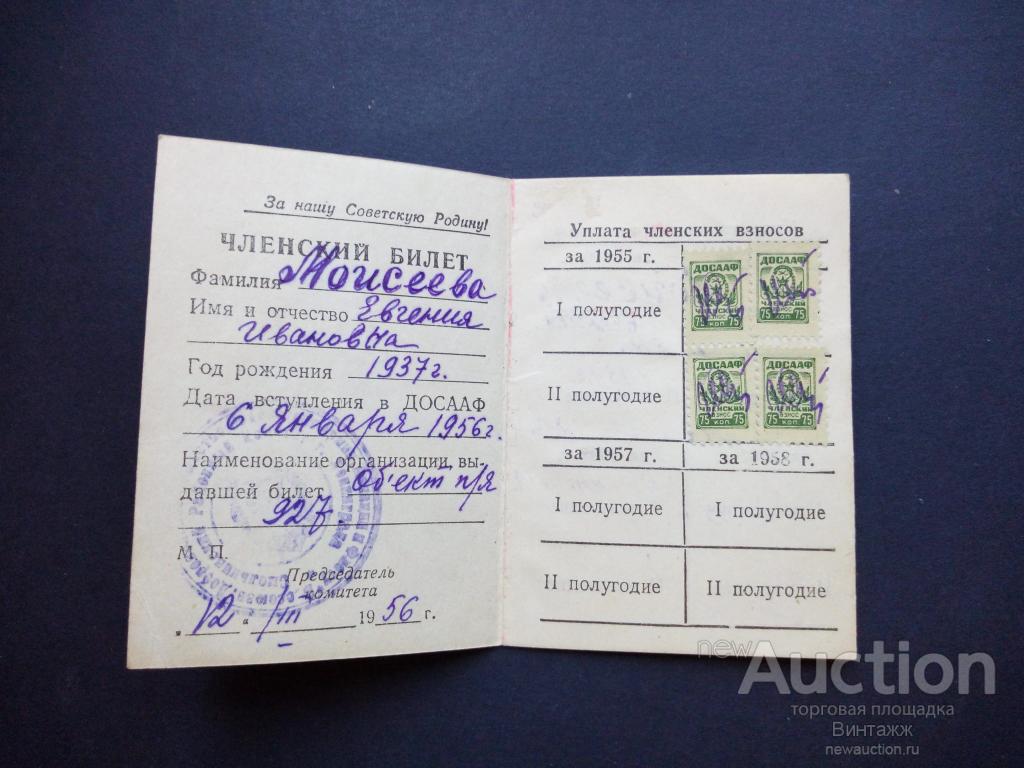 За нашу Советскую Родину!
ЧЛЕНСКИЙ БИЛЕТ
Фамилия Моисеева
Имя и отчество Евгения
Ивановна
Год рождения 1937г.
Дата вступления в ДОСААФ
6 Января 1956г.
Наименование организации, вы-
давшей билет Объект п/я
927.
М. П.
Председатель
комитета
„12“ III 1956 г.
Уплата членских взносов
за 1955 г.
I полугодие
II полугодие
ДОСААФ
ЧЛЕНСКИЙ
ВЗНОС
75 КОП 75
ДОСААФ
ЧЛЕНСКИЙ
ВЗНОС
75 КОП 75
ДОСААФ
ЧЛЕНСКИЙ
ВЗНОС
75 КОП. 75
ДОСААФ
ЧЛЕНСКИЙ
ВЗНОС
75 КОП. 75
за 1957 г. за 1958 г.
I полугодие I полугодие
II полугодие II полугодие
newAuction
торговая площадка
Винтажж
newauction.ru